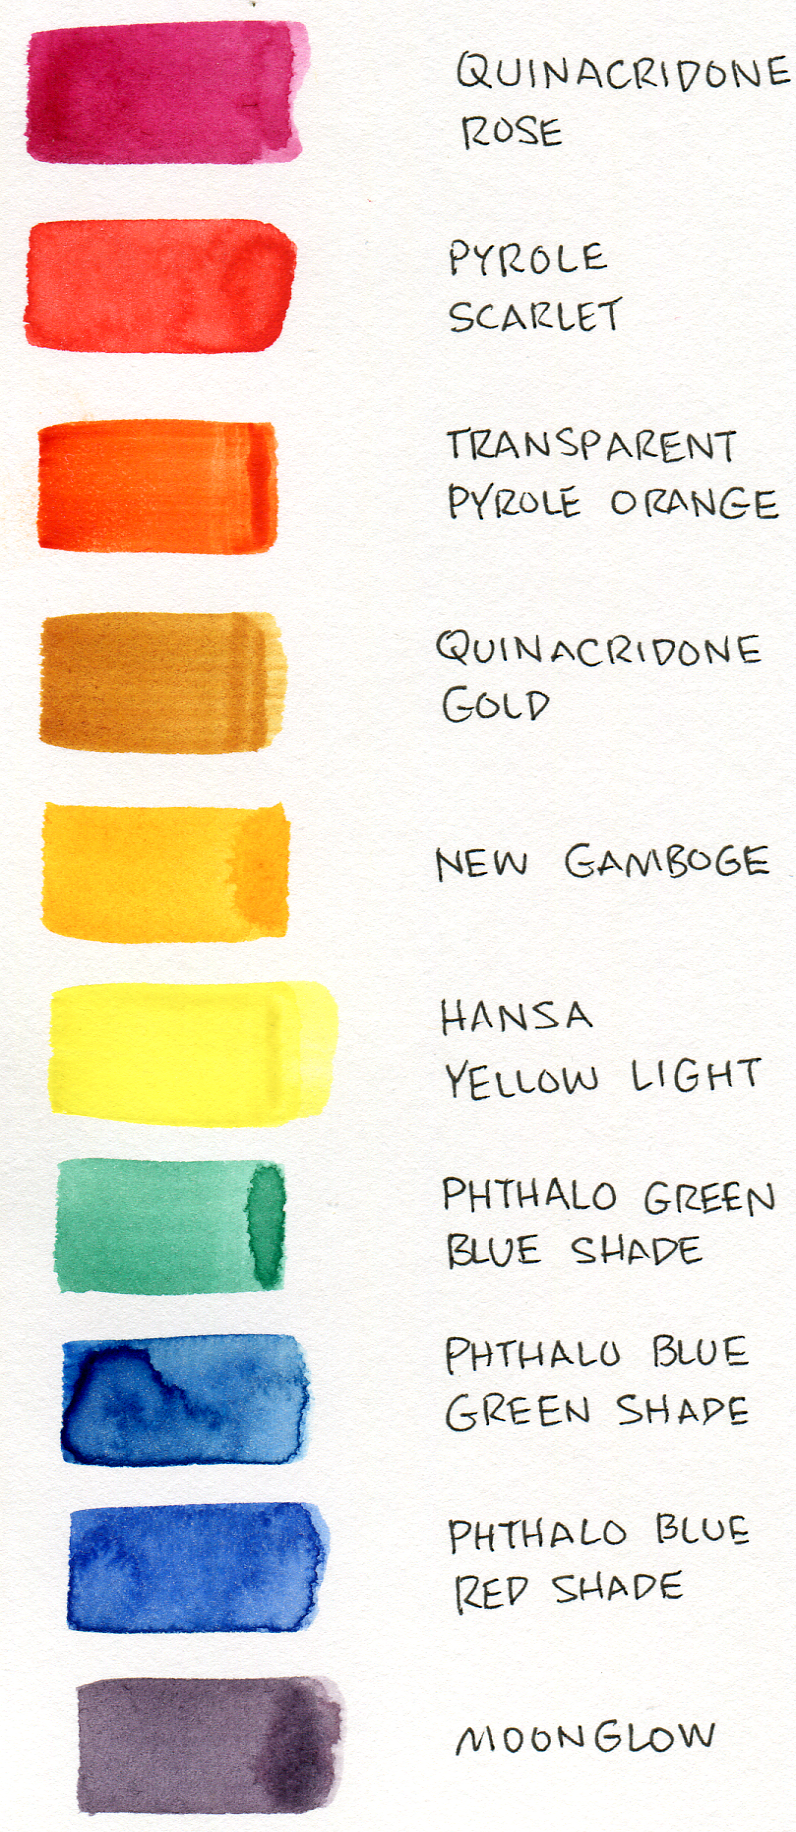 QUINACRIDONE
ROSE
PYROLE
SCARLET
TRANSPARENT
PYROLE ORANGE
QUINACRIDONE
GOLD
NEW GAMBOGE
HANSA
YELLOW LIGHT
PHTHALO GREEN
BLUE SHADE
PHTHALO BLUE
GREEN SHADE
PHTHALO BLUE
RED SHADE
MOONGLOW